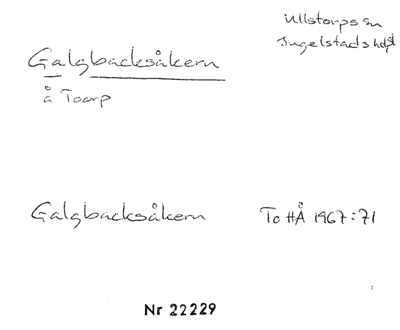 Ullstorps sn
Ingelstads hd
Galgbacksåkern
å Toarp
Galgbacksåkern
To HÅ 1967:71
Nr 22229